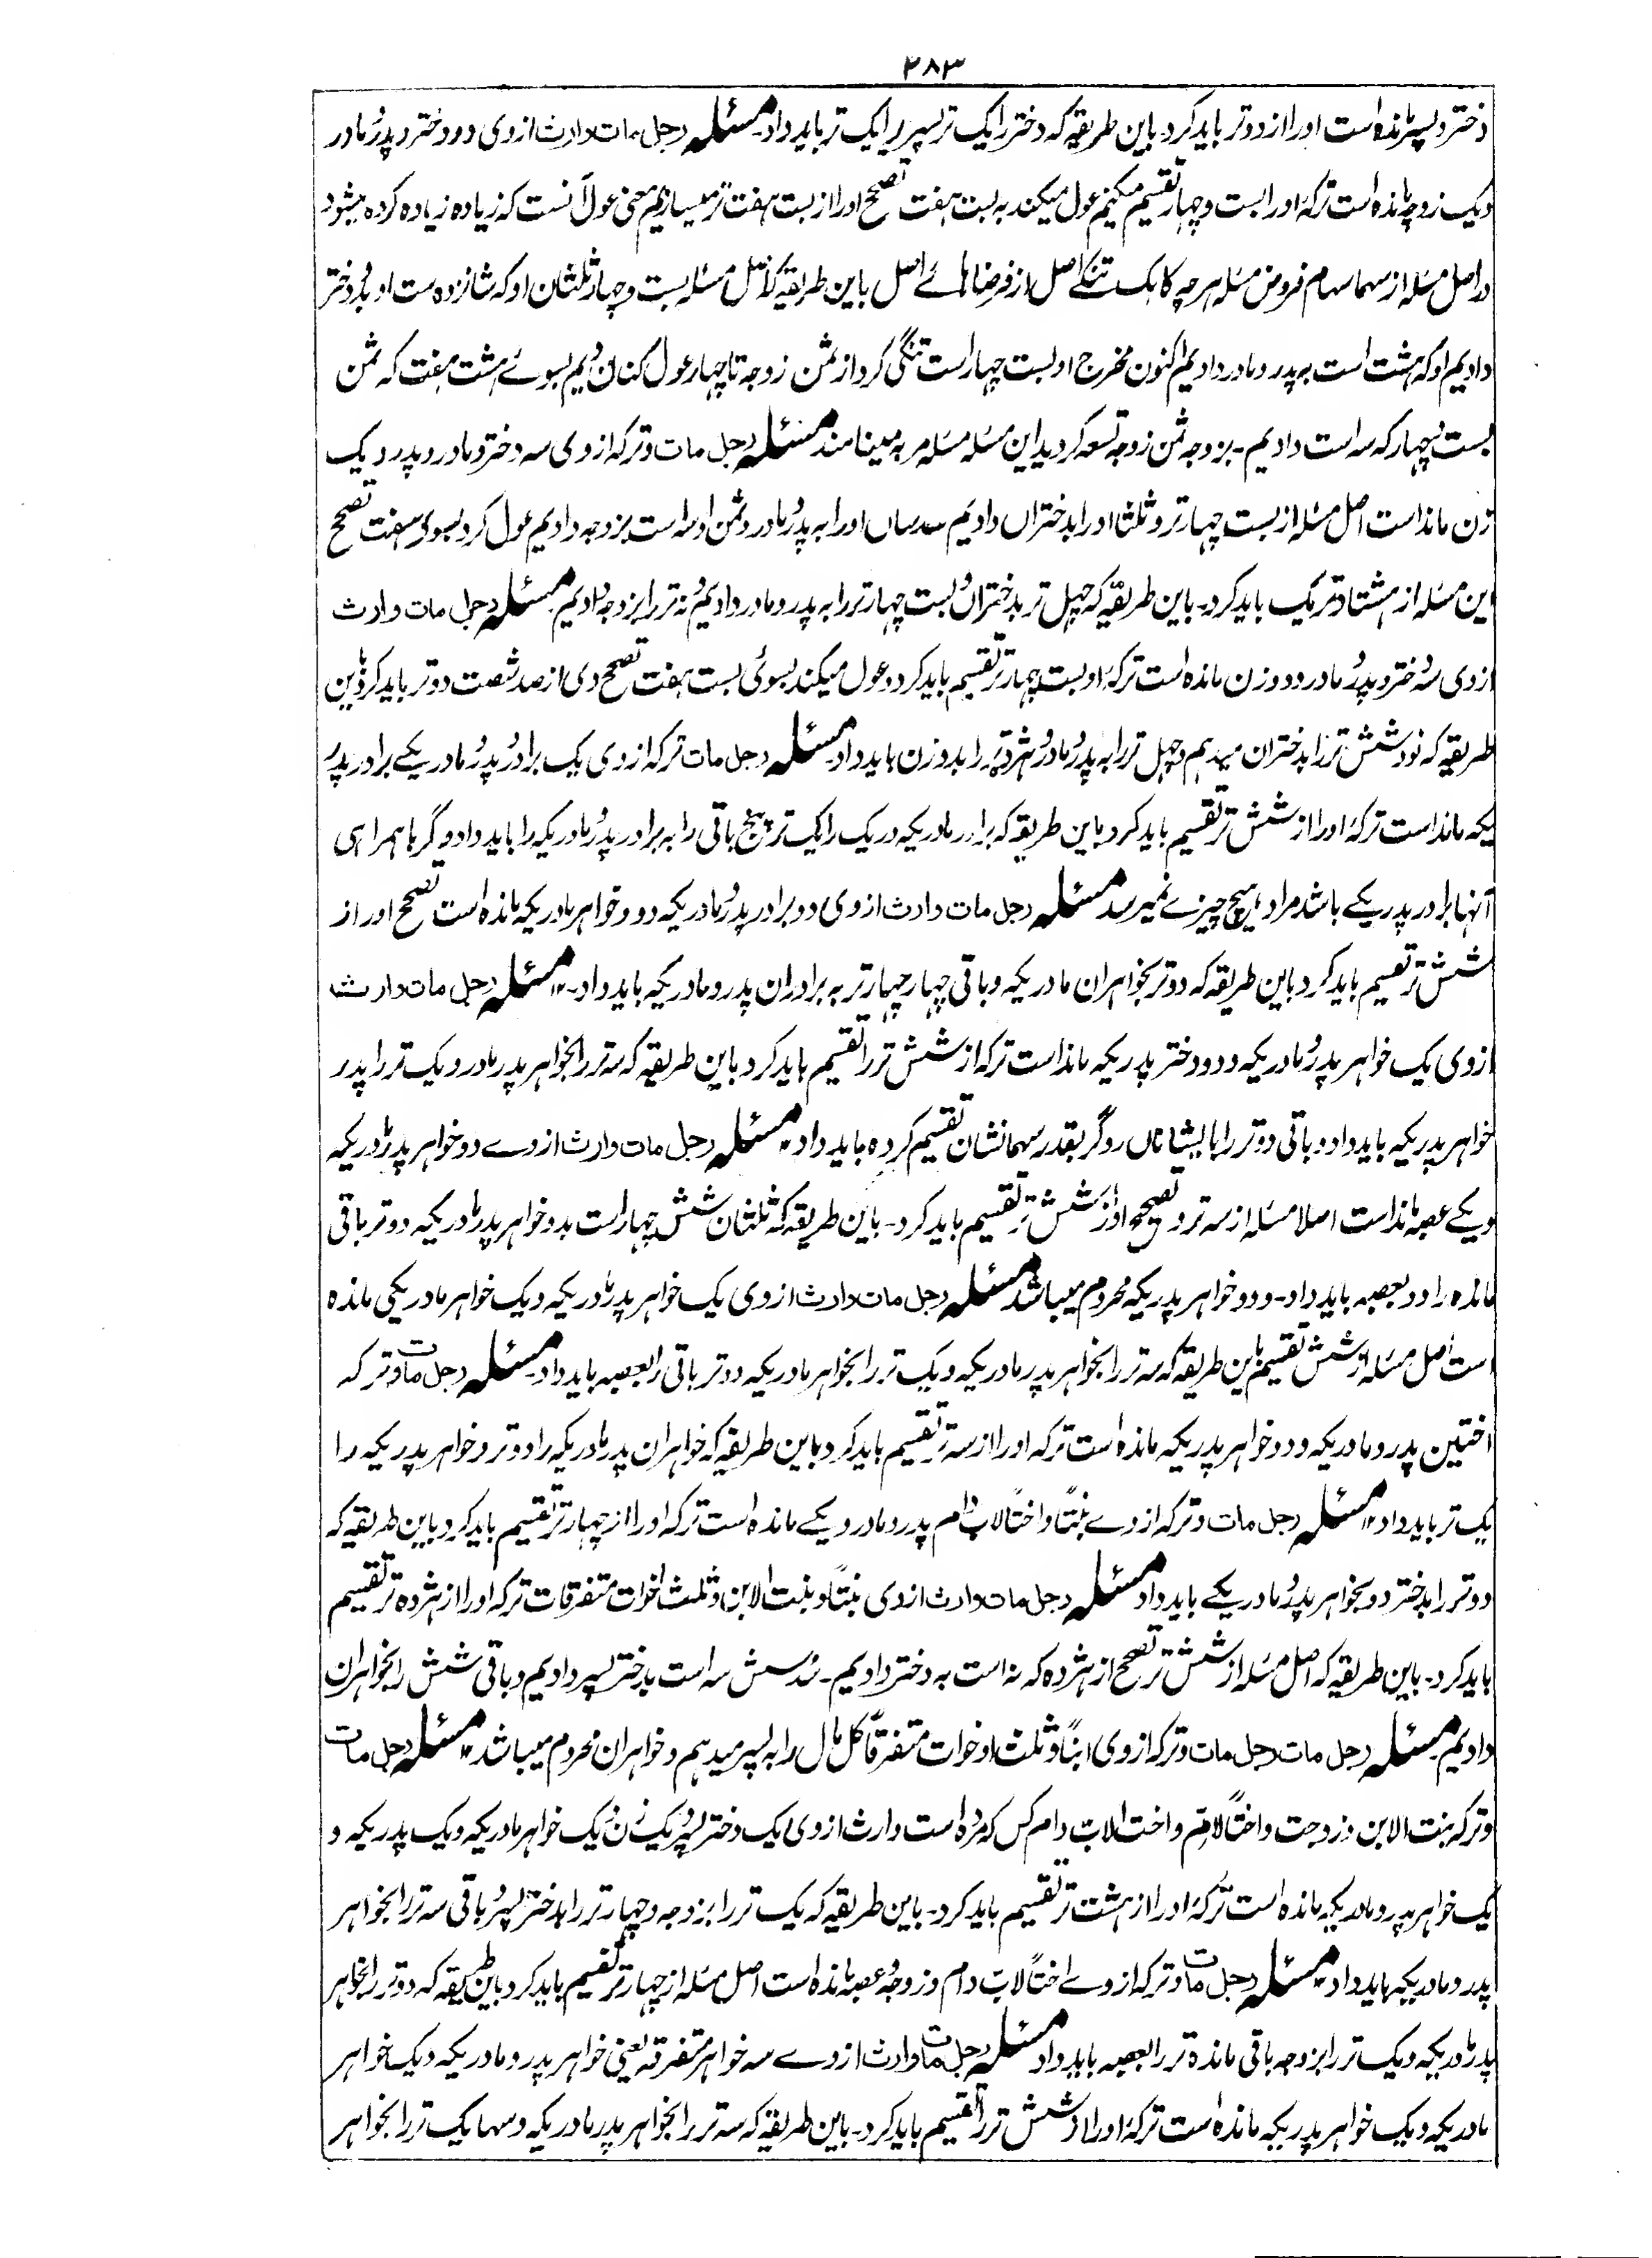 ۳۸۳
دختر و پسر مانده است او را از دو تر باید کرد۔ باین طریقه که دختر را یک تر پسر را یک تر باید داد۔ مسئله رجل مات وارث از وی دو دختر و پدر و مادر
و یک زوجه مانده است ترکه او را بست و چهار تقسیم میکنیم عول میکند به بست هفت تصحح او را از بست هفت تر میسازیم معنی عول آنست که زیاده زیاده کرده میشود
در اصل مسئله از سهما سهام فروض مسئله هر چه کا یک تنگے اصل از فرضا هائے اصل باین طریقه که اصل مسئله بست و چهار ثلثان او که شانزده ست او بدو دختر
دادیم او که هشت است به پدر و مادر دادیم اکنون مخرج او بست چهار است تنگی کرد از ثمن زوجه تا چهار عول کنان دیم بسوئے هشت هفت که ثمن
بست چهار که سه است دادیم۔ بزوجه ثمن زوجه تسعه کردید این مسئله مسئله مربه مینامند مسئله رجل مات و ترکه از وی سه دختر و مادر و پدر و یک
زن مانداست اصل مسئله از بست چهار تر و ثلثا او را بدختران دادیم سدسان او را به پدر و مادر و ثمن او سه است بزوجه دادیم عول کرد بسوی هفت تصحح
این مسئله از هشتاد تر یک باید کرد۔ باین طریقه که چهل تر بدختران و بست چهار تر را به پدر و مادر دادیم و نه تر را بزوجه دادیم مسئله رجل مات وارث
از وی سه دختر و پدر و مادر و دو زن مانده است ترکه او بست چهار تر تقسیم باید کرد و عول میکند بسوئ بست هفت تصحح وی از صد شصت دو تر باید کرد باین
طریقه که نود شش تر را بدختران میدهم و چهل تر را به پدر و مادر و هژده تر را بدو زن باید داد۔ مسئله رجل مات ترکه از وی یک برادر پدر و مادر یکے برادر پدر
یکه مانداست ترکه او را از شش تر تقسیم باید کرد باین طریقه که برادر مادریکه در یک را یک تر و پنج باقی را به برادر پدر و مادریکه را باید داد و گر با همراهی
آنها برادر پدریکے باشد مراد را هیچ چیزے نمیرسد مسئله رجل مات وارث از وی دو برادر پدر و مادریکه دو و خواهر مادریکه مانده است تصحح او را از
شش تر تقسیم باید کرد باین طریقه که دو تر بخواهران مادریکه و باقی چهار چهار تر به برادران پدر و مادریکه باید داد۔ مسئله رجل مات وارث
از وی یک خواهر پدر و مادریکه و دو دختر پدریکه مانداست ترکه از شش تر را تقسیم باید کرد باین طریقه که سه تر را بخواهر پدر مادر و یک تر را پدر
خواهر پدریکه باید داد و باقی دو تر را با ایشانان رو گر بقدر سهمانشان تقسیم کرده باید داد۔ مسئله رجل مات وارث از وے دو خواهر پدر مادریکه
و یکے عصبه مانداست اصلا مسئله از سه تر و تصحح او از شش تر تقسیم باید کرد۔ باین طریقه که ثلثان شش چهار است بدو خواهر پدر مادریکه دو تر باقی
مانده را دو بعصبه باید داد۔ و دو خواهر پدریکه محروم میباشد مسئله رجل مات وارث از وی یک خواهر پدر مادریکه و یک خواهر مادریکی مانده
است اصل مسئله از شش تقسیم باین طریقه که سه تر را بخواهر پدر مادریکه و یک تر را بخواهر مادریکه دو تر باقی را بعصبه باید داد۔ مسئله رجل مات و ترکه
اختین پدر و مادریکه و دو خواهر پدریکه مانده است ترکه او را از سه تر تقسیم باید کرد باین طریقه که خواهران پدر مادریکه را دو تر و خواهر پدریکه را
یک تر باید داد۔ مسئله رجل مات و ترکه از وے بنتاً و اختاً لاب و ام پدر و مادر و یکے مانده است ترکه او را از چهار تر تقسیم باید کرد باین طریقه که
دو تر را بدختر دو بخواهر پدر و مادریکے باید داد مسئله رجل مات وارث از وی بنتاً و بنت الابن و ثلث اخوات متفرقات ترکه او را از هژده تر تقسیم
باید کرد۔ باین طریقه که اصل مسئله از شش تر تصحح از هژده که نه است به دختر دادیم۔ سدسش سه است بدختر پسر دادیم و باقی شش را بخواهران
دادیم مسئله رجل مات رجل مات و ترکه از وی ابناً و ثلث اوخوات متفرقاً کل مال را به پسر میدهم و خواهران محروم میباشد۔ مسئله رجل مات
و ترکه بنت الابن و زوجت و اختاً لام و اخت لاب و ام کس که مرده است وارث از وی یک دختر پسر و یک زن یک خواهر مادریکه و یک پدریکه و
یک خواهر پدر و مادریکه مانده است ترکه او را از هشت تر تقسیم باید کرد۔ باین طریقه که یک تر را بزوجه و چهار تر را بدختر پسر و باقی سه تر را بخواهر
پدر و مادریکه باید داد۔ مسئله رجل مات و ترکه از وے اختاً لاب و ام و زوجه و عصبه مانده است اصل مسئله از چهار تر تقسیم باید کرد باین طریقه که دو تر را بخواهر
پدر مادریکه و یک تر را بزوجه باقی مانده تر را بعصبه باید داد مسئله رجل مات وارث از وے سه خواهر متفرقه یعنی خواهر پدر و مادریکه و یک خواهر
مادریکه و یک خواهر پدریکه مانده است ترکه او را از شش تر را تقسیم باید کرد۔ باین طریقه که سه تر را بخواهر پدر مادریکه و سهما یک تر را بخواهر